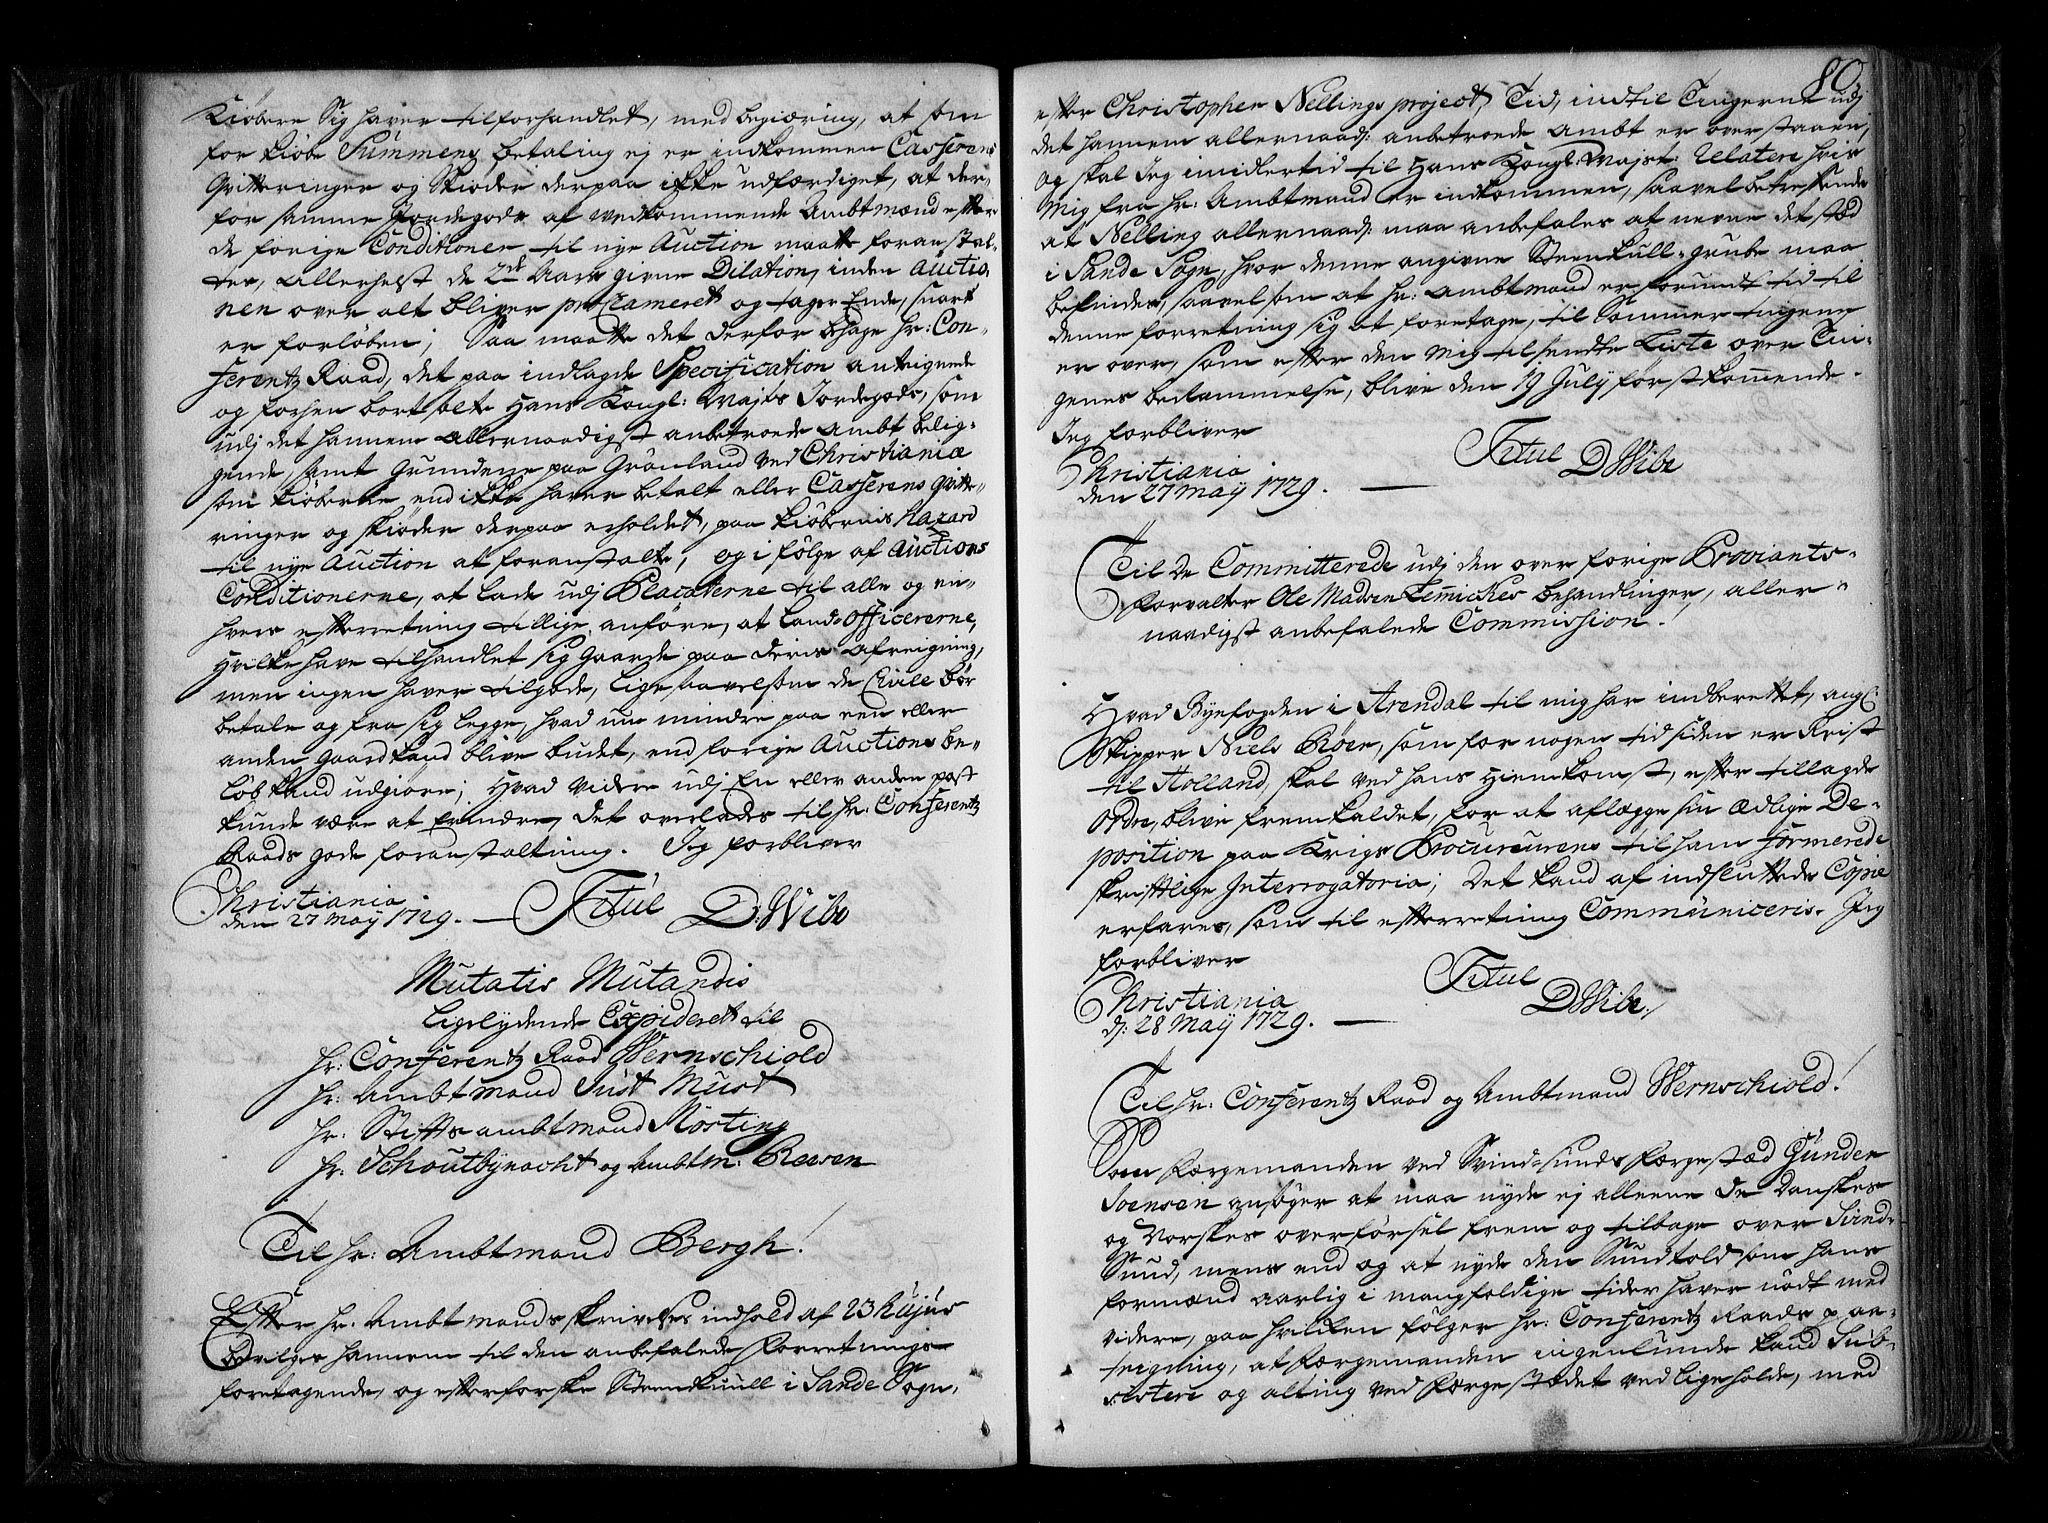 Kiøbere Sig haver tilforhandlet, med begiæring, at som
for kiøbe Summens betaling ej er indkommen Casserens
Qvitteringer og Skiøder derpaa ikke udfærdiget, at der-
for samme Jordegods af vedkommende Ambtmænd efter
de forige Conditioner til nye Auction maatte foranstal-
tes, allerhelst de 2de Aars givne Dilation, inden Auctio-
nen over alt bliver proclameret og tager Ende, snart
er forløben; Saa maatte det derfor behage hr: Con-
ferentz Raad, det paa indlagde Specification antegnede
og forhen bortsolte Hans Kongl: Mayts Jordegods, som
udj det hannem allernaadigst anbetroede Ambt belig-
gende, samt Grundene paa Grønland ved Christiania
som kiøberne end ikke haver betalt eller Casserens Qvitte-
ringer og skiøder derpaa erholdet, paa kiøbernis Hazard
til nye Auction at foranstalte, og i følge af Auctions
Conditionerne, at lade udj Placaterne til alle og en-
hvers efterretning tillige anføre, at Land-Officererne,
hvilke have tilhandlet sig Gaarde paa deris afreigning,
men ingen haver tilgode, lige saavelsom de Civile bør
betale og fra sig legge, hvad nu mindre paa een eller
anden gaard kand blive budet, end forige Auctions be-
løb kand udgiøre; Hvad videre udj En eller anden post
kunde være at erindre, det overlades til hr: Conferentz
Raads gode foranstaltning. Jeg forbliver
Christiania
den 27 May 1729. Titul D: Wibe
Mutatis Mutandis
Ligelydende Expideret til
hr: Conferentz Raad Wernschiold
hr: Ambtmand Just Must
hr: Stiftsambtmand Mösting
hr: Schoutbynacht og Ambtm: Reesen
Til hr: Ambtmand Bergh!
Efter hr: Ambtmands skrivelses indhold af 23 hujus
bevilges hannem til den anbefalede forretnings
foretagende, og efterforske Steenkuull i Sande Sogn,
80
efter Christopher Nellings project, Tid, indtil Tingerne udj
det hannem allernaad: anbetroede Ambt er overstaaen,
og skal Jeg imidlertid til Hans Kongl: Mayst: Relatere hvis
mig fra hr: Ambtmand er indkommen, saavel betreffende
at Nelling allernaad: maa anbefales at nevne det stæd
i Sande Sogn, hvor denne angivne Steenkull-grube maa
befindes, saavelsom at hr: Ambtmand er forundt tid til
denne forretning sig at foretage, til Sommertingene
er over, som efter den mig tilsendte Liste over Tin-
genes bestemmelse, blive den 19 July førstkommende.
Jeg forbliver
Christiania
den 27 May 1729. Titul DWibe
Til De Committerede udj den over forige Proviants-
forvalter Ole Madsen Lemickes behandlinger, aller-
naadigst anbefalede Commission!
Hvad Byefogden i Arendal til mig har indberettet, ang:
Skipper Niels Röer, som for nogen tid siden er Reist
til Holland, skal ved hans Hiemkomst, efter tillagde
Ordre, blive fremkaldet, for at aflægge sin ædlige De-
position paa Krigs Procureurens til ham formerede
skriftlige Interrogatoria; Det kand af indsluttede Copie
erfares, som til efterretning Communiceris. Jeg
forbliver
Christiania
d: 28 May 1729. Titul DWibe
Til hr: Conferentz Raad og Ambtmand Wernschiold!
Som færgemanden ved Svindesunds færgestæd Gunder
Svensen ansøger at maa nyde ej alleene de Danskes
og Norskes overførsel frem og tilbage over Svinde-
Sund, mens end og at nyde den Sundtold som hans
formænd aarlig i mangfoldige tider haver nødt med
videre, paa hvilken følger hr: Conferentz Raads paa-
tegning, at færgemanden ingenlunde kand Sub-
sistere og alting ved færgestædet ved lige holde, med